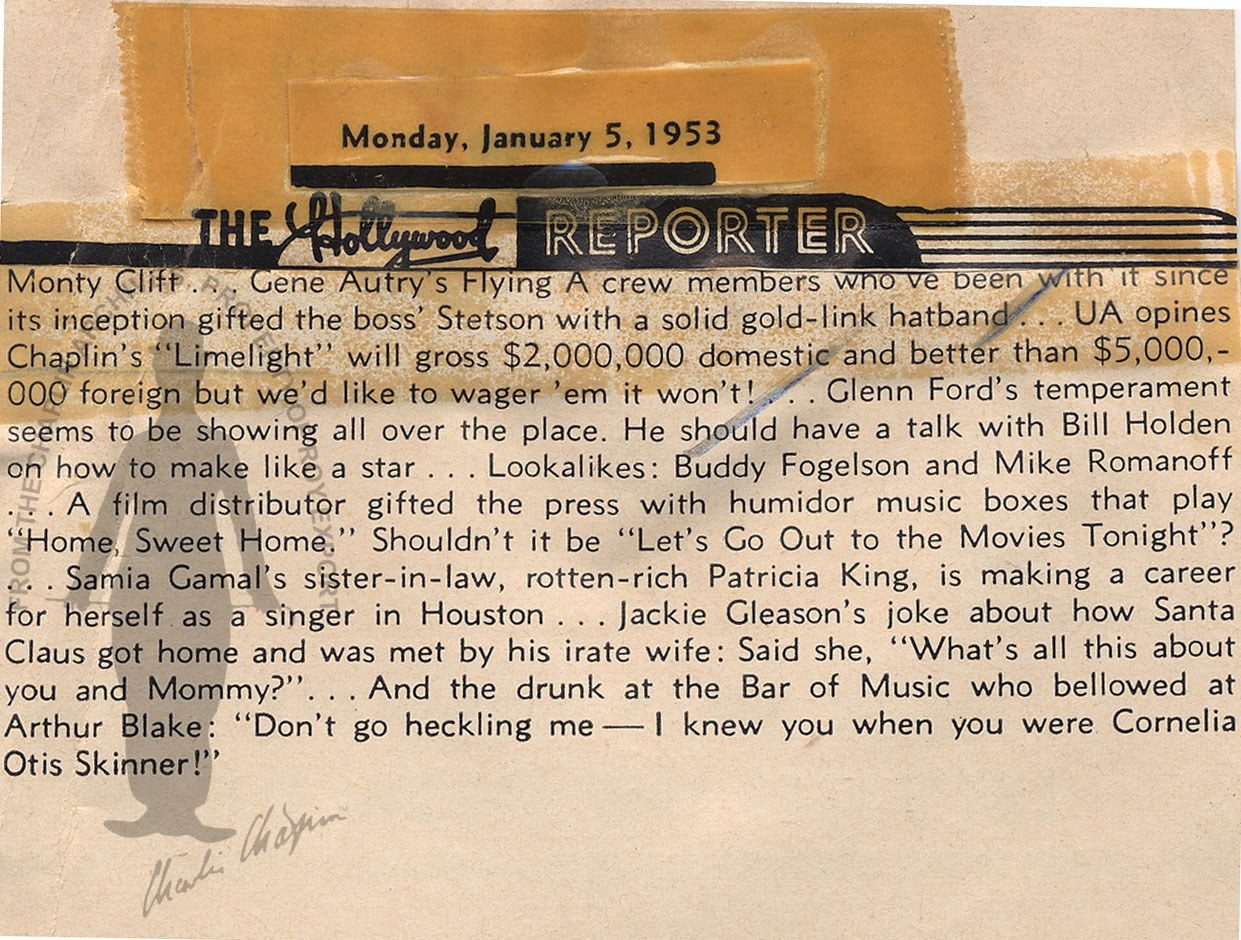 Monday, January 5, 1953
THE Hollywood REPORTER
Monty Clift . . . Gene Autry's Flying A crew members who've been with it since
its inception gifted the boss' Stetson with a solid gold-link hatband . . . UA opines
Chaplin's "Limelight" will gross $2,000,000 domestic and better than $5,000,-
000 foreign but we'd like to wager 'em it won't! . . . Glenn Ford's temperament
seems to be showing all over the place. He should have a talk with Bill Holden
on how to make like a star . . . Lookalikes: Buddy Fogelson and Mike Romanoff
. . . A film distributor gifted the press with humidor music boxes that play
"Home, Sweet Home." Shouldn't it be "Let's Go Out to the Movies Tonight"?
. . . Samia Gamal's sister-in-law, rotten-rich Patricia King, is making a career
for herself as a singer in Houston . . . Jackie Gleason's joke about how Santa
Claus got home and was met by his irate wife: Said she, "What's all this about
you and Mommy?". . . And the drunk at the Bar of Music who bellowed at
Arthur Blake: "Don't go heckling me — I knew you when you were Cornelia
Otis Skinner!"
FROM THE
Charlie Chaplin